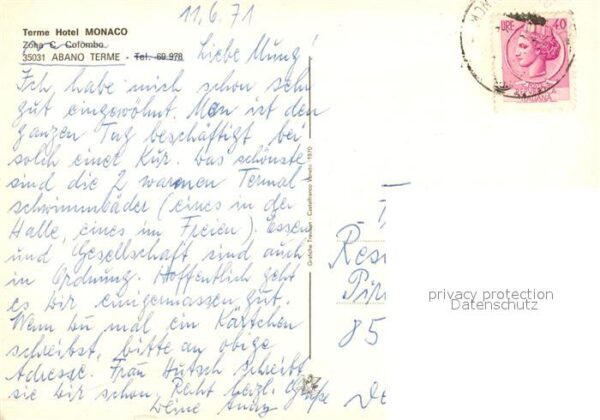 11.6.71
Terme Hotel MONACO
Zona C. Colombo
35031 ABANO TERME - Tel. 69.978
Liebe
Ich habe mich schon sehr
gut eingewöhnt. Man ist den
ganzen Tag beschäftigt bei
solch einer Kur. Das schönste
sind die 2 warmen Termal-
schwimmbäder (eines in der
Halle, eines im Freien). Essen
und Gesellschaft sind auch
in Ordnung. Hoffentlich geht
es Dir einigermassen gut.
Wenn Du mal ein Kärtchen
schreibst, bitte an obige
Adresse. Frau Hutsch schreibt
sie Dir schon. Recht herzl. Grüße
Deine
Grafiche Trevisan - Castelfranco Veneto 1970
LIRE 40
ITALIANA
Resi
Pir
85
privacy protection
Datenschutz